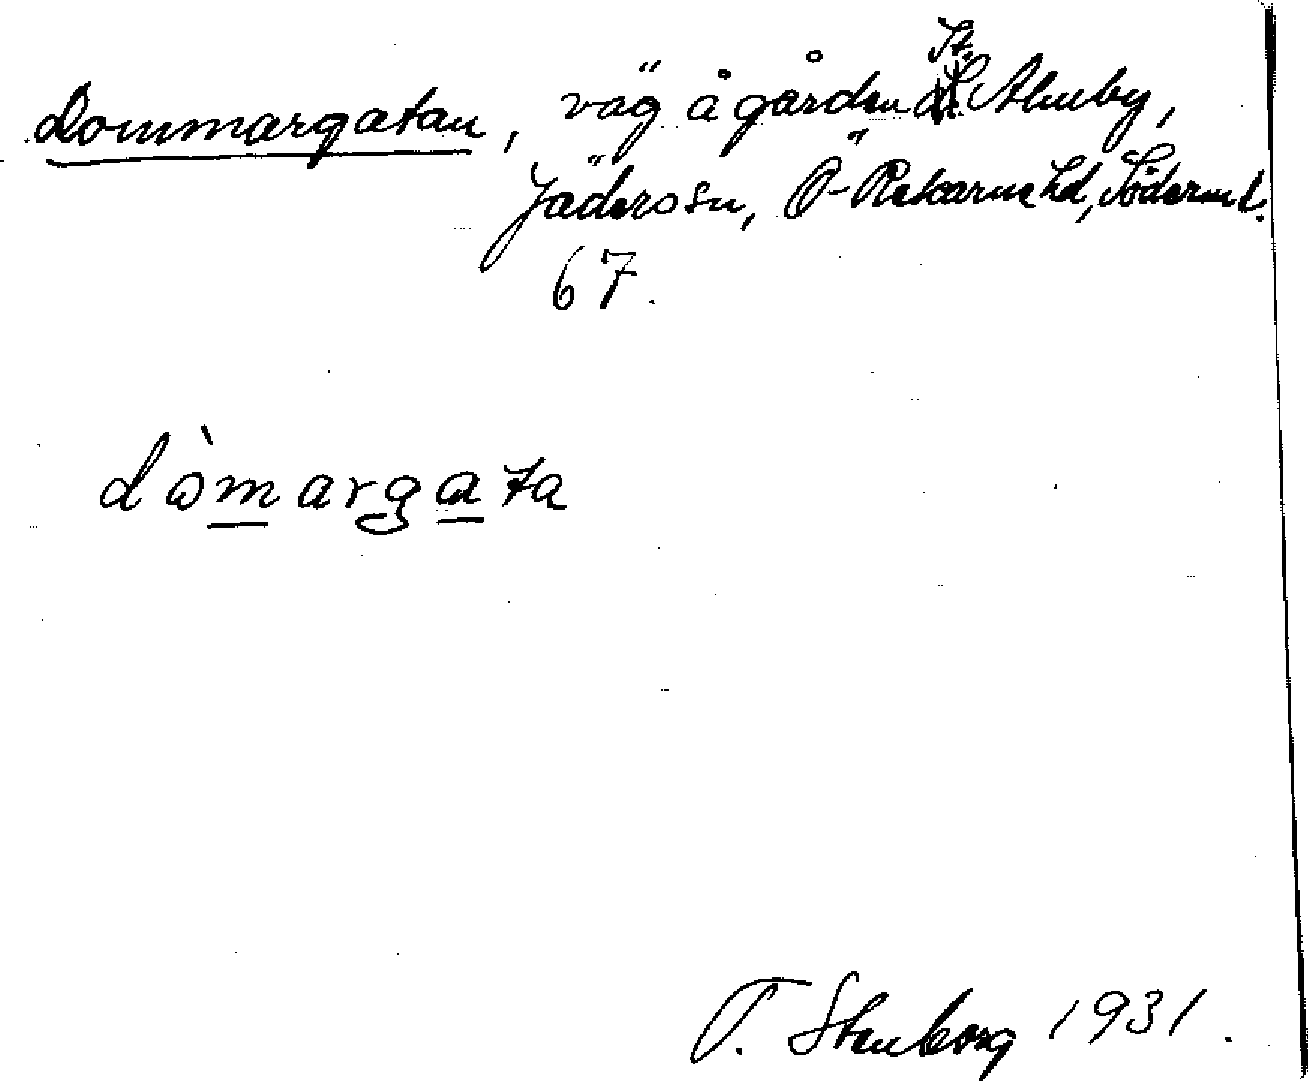 Dommargatan, väg å gården St. Åhuby,
Jäders sn, Ö-Rekarne hd, Söderml.
67.
dòmargata
T. Stenborg 1931.